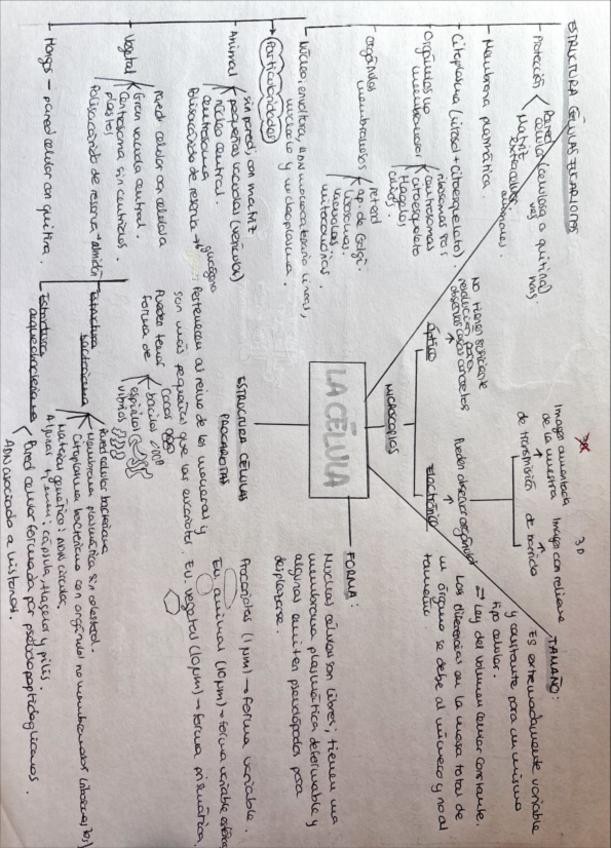 ESTRUCTURA CÉLULAS EUCARIOTAS
Protección
Pared
celular (celulosa o quitina)
Matriz
extracelular
animales.
Membrana plasmática
Citoplasma (citosol + citoesqueleto).
Orgánulos no
membranosos
ribosomas 80s
centrosomas
citoesqueleto
flagelos
cilios
orgánulos
membranosos
ap. de Golgi
lisosomas
vacuolas
mitocondrias
núcleo y nucleoplasma.
Particularidades
Animal
sin pared, con matriz
pequeñas vacuolas (vesículas)
núcleo central.
centrosoma
Polisacárido de reserva → glucógeno
Vegetal
Pared celular con celulosa
Gran vacuola central.
Centrosoma sin centriolos.
Polisacárido de reserva → almidón
Hongos — pared celular con quitina.
LA CÉLULA
MICROSCOPIOS
Óptico
No tienen suficiente
resolución para
Electrónico
Pueden observar orgánulos
de transmisión
Imagen aumentada
de la muestra
de barrido
Imagen con relieve
3D
TAMAÑO:
Es extremadamente variable
y constante para un mismo
tipo celular.
⇒ Ley del volumen celular constante.
Las diferencias en la masa total de
un órgano se debe al número y no al
tamaño
FORMA:
Muchas células son libres; tienen una
membrana plasmática deformable y
algunas emiten pseudópodos para
desplazarse.
Procariotas (1 µm) → forma variable.
Eu. animal (10 µm) → forma variable
Eu. vegetal (10 µm) → forma prismática
ESTRUCTURA CÉLULAS
PROCARIOTAS
Pertenecen al reino de las moneras y
son más pequeñas que las eucariotas.
Pueden tener
forma de
cocos
bacilos
espirilos
vibrios
Estructura
bacteriana
Pared celular bacteriana
Membrana plasmática sin colesterol.
Citoplasma bacteriano con orgánulos no membranosos (ribosomas 70s)
Material genético: ADN circular
Algunas tienen: cápsula, flagelos y pilis.
Estructura
Pared celular formada por pseudopeptidoglucanos.
ADN asociado a histonas.